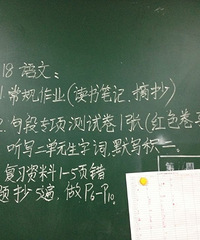 18 语文:
1.常规作业(读书笔记、摘抄)
2.句段专项测试卷1张(红色卷
听写二单元生字词,默写杯一.
复习资料1-5页错
题抄5遍,做P6-P10
第 周